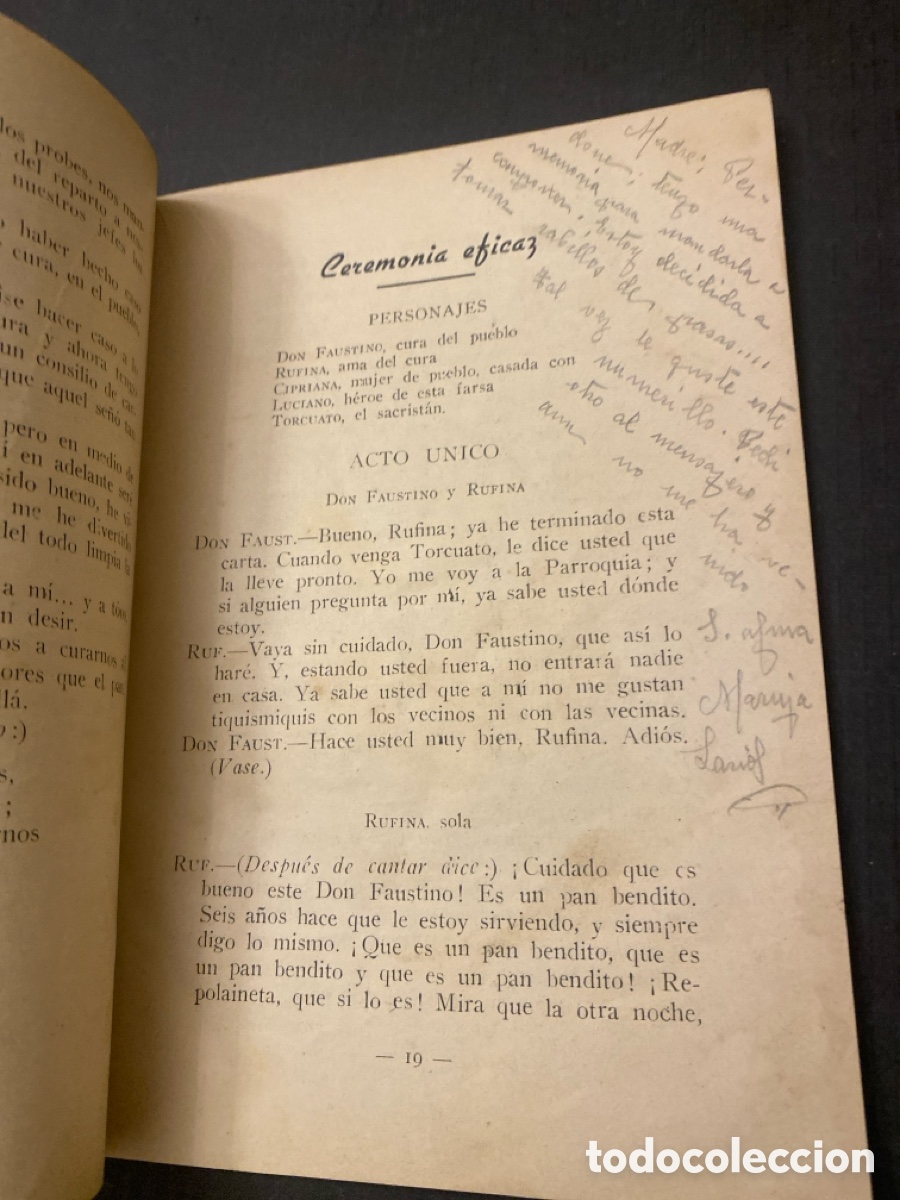 los probes, nos man-
del reparto a nos-
nuestros jefes los
haber hecho caso
cura, en el pueblo,
ise hacer caso a lo
ura y ahora tengo
un consilio de car-
que aquel señó tan
pero en medio de
í en adelante seré
sido bueno, he vi-
me he divertido
del todo limpia la
a mí... y a tóos
n desir.
os a curarnos al
ores que el pan,
llá.
:)
s,
;
rnos
Madre; Per-
done; tengo mia
memoria para mandarla a
componer, Estoy decidida a
tomar rabillos de pasas....
tal vez le guste este
numerillo. Pedi
otro al mensajero y
aun no me ha ve-
nido
S. afma
Maruja
Ceremonia eficaz
PERSONAJES
DON FAUSTINO, cura del pueblo
RUFINA, ama del cura
CIPRIANA, mujer de pueblo, casada con
LUCIANO, héroe de esta farsa
TORCUATO, el sacristán.
ACTO UNICO
DON FAUSTINO Y RUFINA
DON FAUST.—Bueno, Rufina; ya he terminado esta
carta. Cuando venga Torcuato, le dice usted que
la lleve pronto. Yo me voy a la Parroquia; y
si alguien pregunta por mí, ya sabe usted dónde
estoy.
RUF.—Vaya sin cuidado, Don Faustino, que así lo
haré. Y, estando usted fuera, no entrará nadie
en casa. Ya sabe usted que a mí no me gustan
tiquismiquis con los vecinos ni con las vecinas.
DON FAUST.—Hace usted muy bien, Rufina. Adiós.
(Vase.)
RUFINA, sola
RUF.—(Después de cantar dice:) ¡Cuidado que es
bueno este Don Faustino! Es un pan bendito.
Seis años hace que le estoy sirviendo, y siempre
digo lo mismo. ¡Que es un pan bendito, que es
un pan bendito y que es un pan bendito! ¡Re-
polaineta, que si lo es! Mira que la otra noche,
— 19 —
todocoleccion